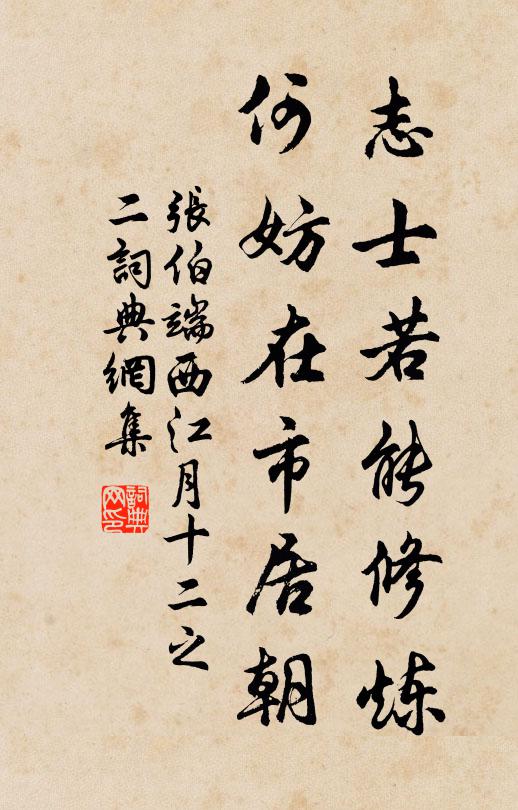 志士若能修炼
何妨在市居朝
張伯端西江月十二之
二詞典網集
詞典网印